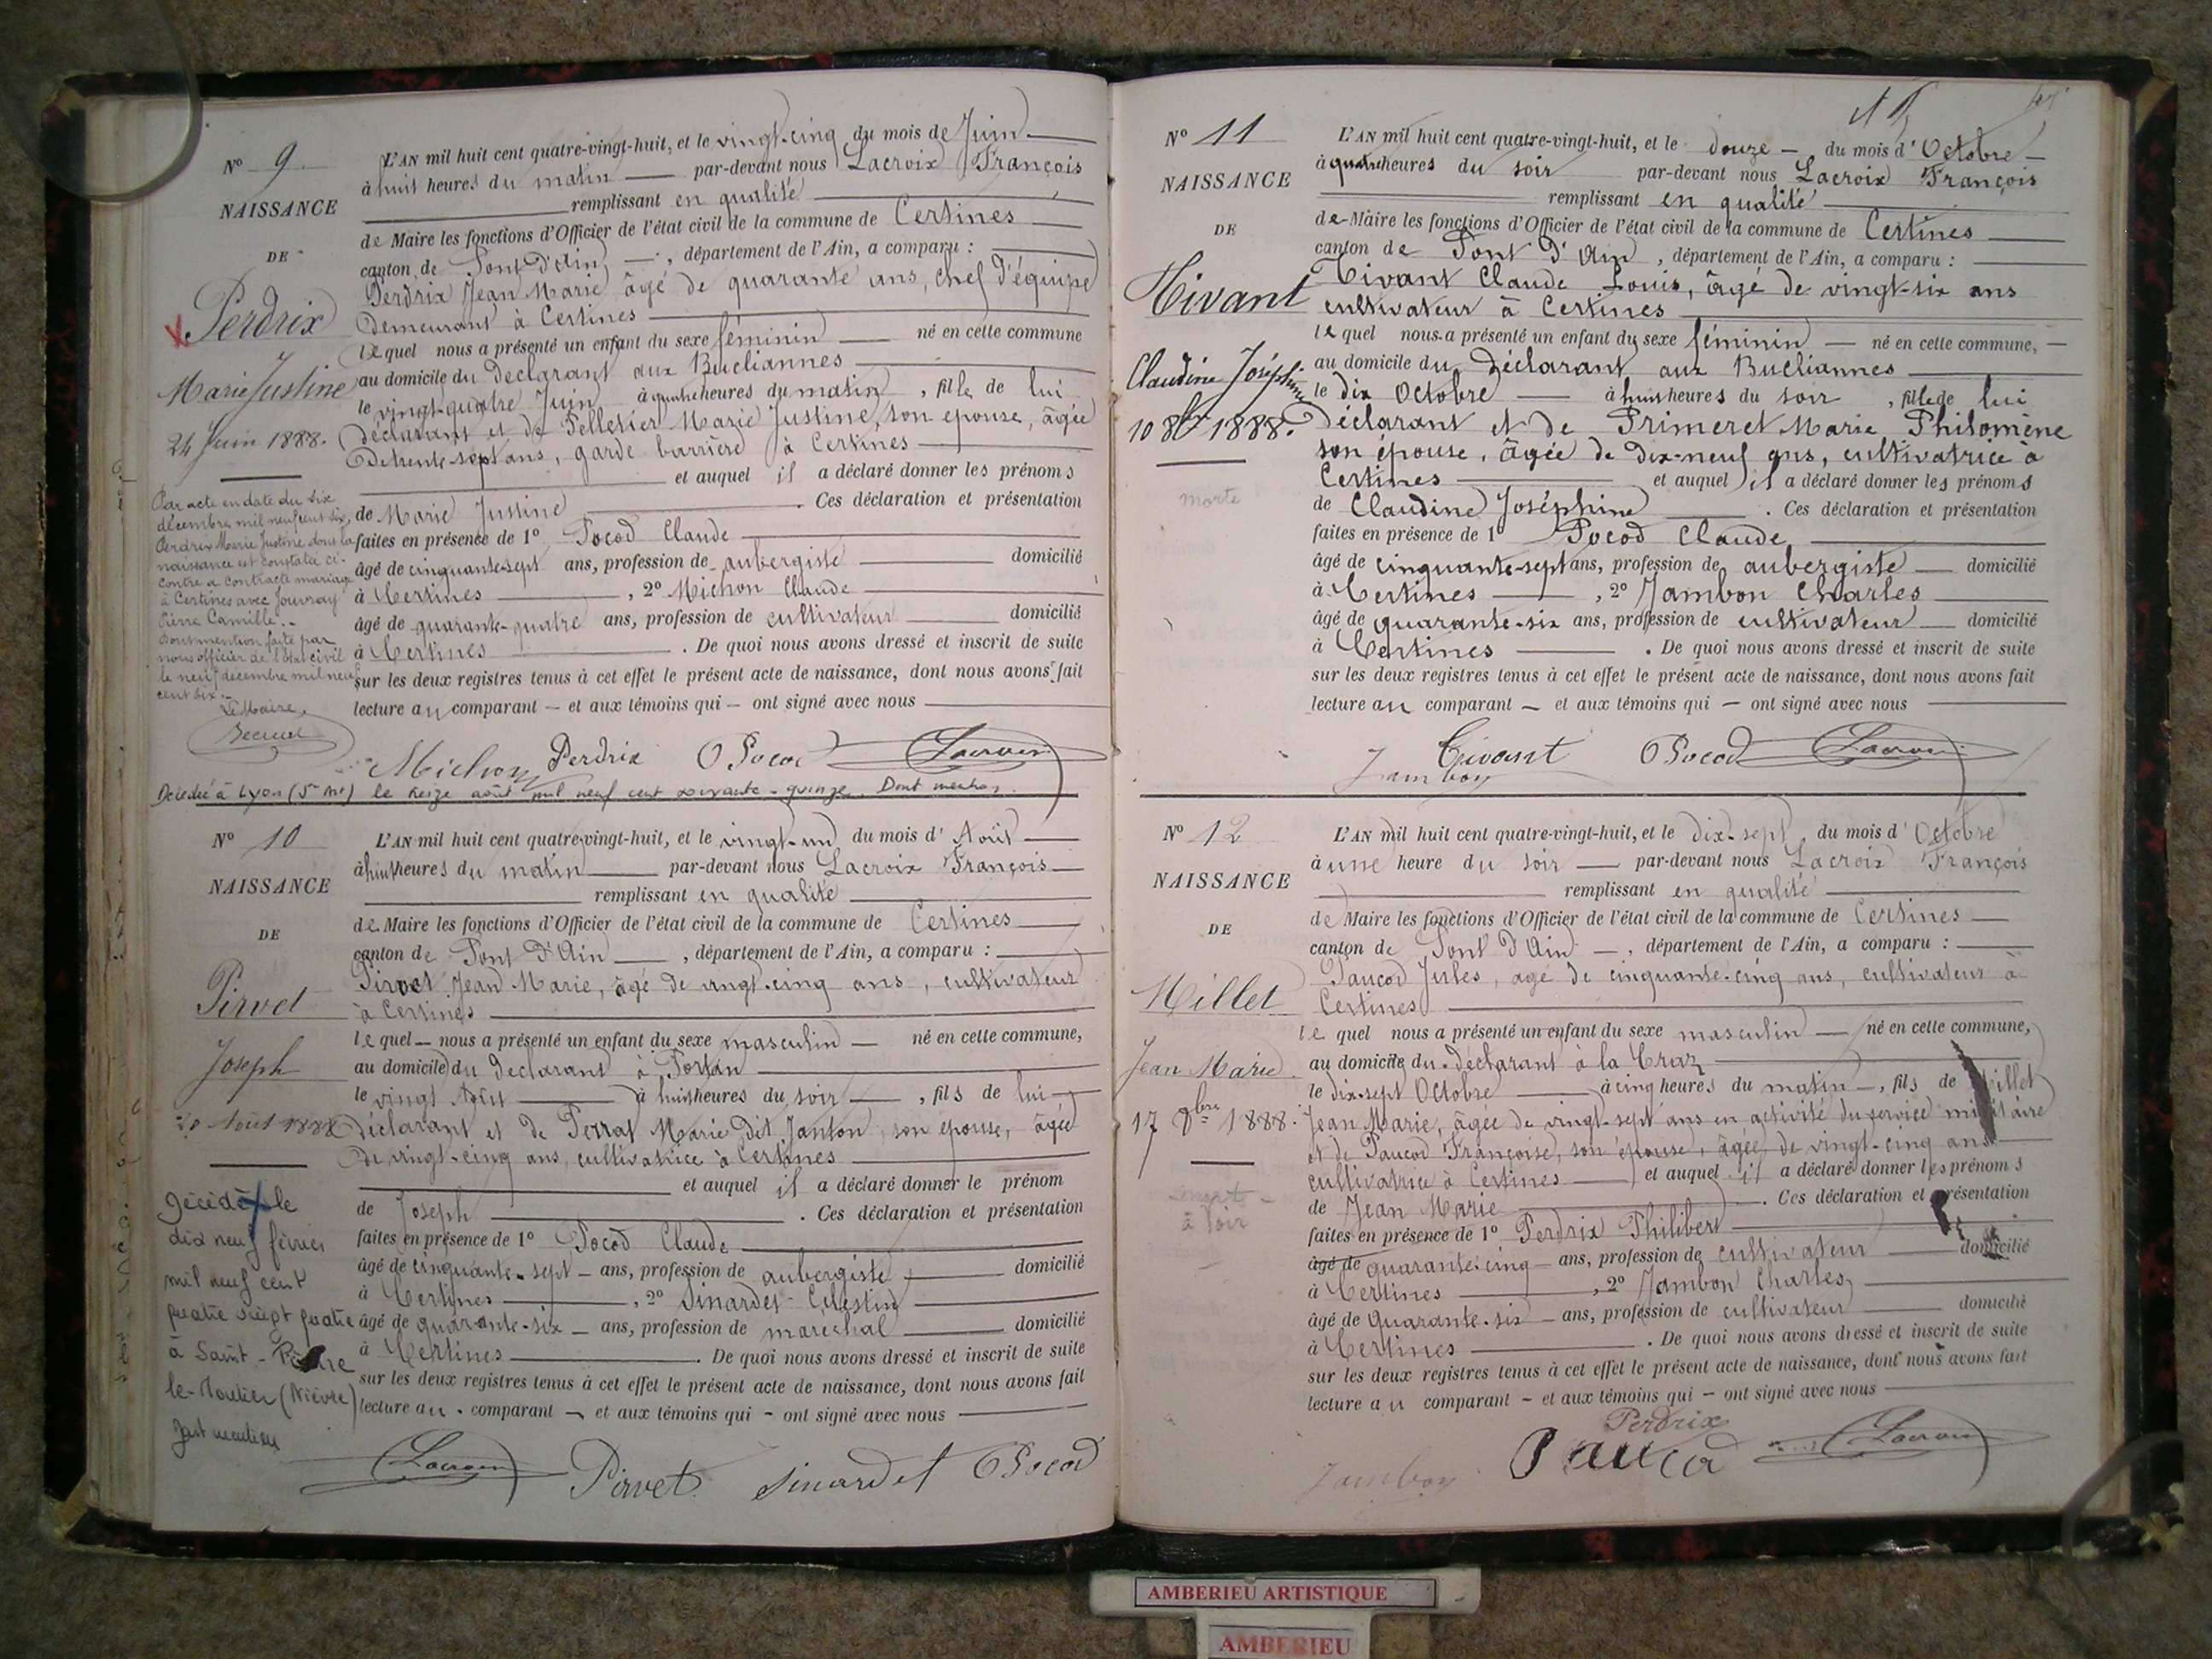 N° 9
NAISSANCE
DE
Perdrix
Marie Justine
24 Juin 1888.
Par acte en date du six
décembre mil neuf cent six,
Perdrix Marie Justine dont la
naissance est constatée ci-
contre a contracté mariage
à Certines avec Jouvray
Pierre Camille.
Dont mention faite par
nous officier de l'état civil
le neuf décembre mil neuf
cent six.
Le Maire,
L'AN mil huit cent quatre-vingt-huit, et le vingt-cinq du mois de Juin
à huit heures du matin par-devant nous Lacroix François
remplissant en qualité
de Maire les fonctions d'Officier de l'état civil de la commune de Certines
canton de Pont d'Ain, département de l'Ain, a comparu :
Perdrix Jean Marie âgé de quarante ans, chef d'équipe
demeurant à Certines
lequel nous a présenté un enfant du sexe féminin né en cette commune
au domicile du déclarant aux Bucliannes
le vingt-quatre Juin à quatre heures du matin, fille de lui
déclarant et de Pelletier Marie Justine, son épouse, âgée
de trente-sept ans, garde barrière à Certines
et auquel il a déclaré donner les prénoms
de Marie Justine . Ces déclaration et présentation
faites en présence de 1° Pocod Claude
âgé de cinquante-sept ans, profession de aubergiste domicilié
à Certines , 2° Michon Claude
âgé de quarante-quatre ans, profession de cultivateur domicilié
à Certines . De quoi nous avons dressé et inscrit de suite
sur les deux registres tenus à cet effet le présent acte de naissance, dont nous avons fait
lecture au comparant – et aux témoins qui – ont signé avec nous
Michon Perdrix Pocod Lacroix
Décédée à Lyon (5me) le treize août mil neuf cent soixante-quinze. Dont mention.
N° 10
NAISSANCE
DE
Pirvet
Joseph
20 Août 1888
Décédé le
dix neuf février
mil neuf cent
quatre vingt quatre
à Saint-Pierre
le-Moutier (Nièvre)
Dont mention
L'AN mil huit cent quatre-vingt-huit, et le vingt-un du mois d'Août
à huit heures du matin par-devant nous Lacroix François
remplissant en qualité
de Maire les fonctions d'Officier de l'état civil de la commune de Certines
canton de Pont d'Ain , département de l'Ain, a comparu :
Pirvet Jean Marie, âgé de vingt-cinq ans, cultivateur
à Certines
lequel – nous a présenté un enfant du sexe masculin – né en cette commune,
au domicile du déclarant à
le vingt Août à huit heures du soir , fils de lui
déclarant et de Perrat Marie dit Janton, son épouse, âgée
de vingt-cinq ans, cultivatrice à Certines
et auquel il a déclaré donner le prénom
de Joseph . Ces déclaration et présentation
faites en présence de 1° Pocod Claude
âgé de cinquante-sept – ans, profession de aubergiste domicilié
à Certines , 2° Sinardet Célestin
âgé de quarante-six – ans, profession de maréchal domicilié
à Certines . De quoi nous avons dressé et inscrit de suite
sur les deux registres tenus à cet effet le présent acte de naissance, dont nous avons fait
lecture au comparant – et aux témoins qui – ont signé avec nous
Lacroix Pirvet Sinardet Pocod
N° 11
NAISSANCE
DE
Tivant
Claudine Joséphine
10 8bre 1888.
morte
L'AN mil huit cent quatre-vingt-huit, et le douze – du mois d'Octobre –
à quatre heures du soir par-devant nous Lacroix François
remplissant en qualité
de Maire les fonctions d'Officier de l'état civil de la commune de Certines
canton de Pont d'Ain , département de l'Ain, a comparu :
Tivant Claude Louis, âgé de vingt-six ans
cultivateur à Certines
lequel nous a présenté un enfant du sexe féminin – né en cette commune, –
au domicile du déclarant aux Bucliannes
le dix Octobre à huit heures du soir , fille de lui
déclarant et de Primeret Marie Philomène
son épouse, âgée de dix-neuf ans, cultivatrice à
Certines et auquel il a déclaré donner les prénoms
de Claudine Joséphine . Ces déclaration et présentation
faites en présence de 1° Pocod Claude
âgé de cinquante-sept ans, profession de aubergiste – domicilié
à Certines , 2° Jambon Charles
âgé de quarante-six ans, profession de cultivateur – domicilié
à Certines . De quoi nous avons dressé et inscrit de suite
sur les deux registres tenus à cet effet le présent acte de naissance, dont nous avons fait
lecture au comparant – et aux témoins qui – ont signé avec nous
Jambon Tivant Pocod Lacroix
N° 12
NAISSANCE
DE
Millet
Jean Marie
17 8bre 1888.
à voir
L'AN mil huit cent quatre-vingt-huit, et le dix-sept du mois d'Octobre
à une heure du soir par-devant nous Lacroix François
remplissant en qualité
de Maire les fonctions d'Officier de l'état civil de la commune de Certines
canton de Pont d'Ain –, département de l'Ain, a comparu :
Paucod Jules, âgé de cinquante-cinq ans, cultivateur à
Certines
lequel nous a présenté un enfant du sexe masculin – né en cette commune,
au domicile du déclarant à la Craz
le dix-sept Octobre à cinq heures du matin –, fils de Millet
Jean Marie, âgée de vingt-sept ans en activité du service militaire
et de Paucod Françoise, son épouse, âgée de vingt-cinq ans
cultivatrice à Certines et auquel il a déclaré donner les prénoms
de Jean Marie . Ces déclaration et présentation
faites en présence de 1° Perdrix Philibert
âgé de quarante-cinq ans, profession de cultivateur domicilié
à Certines , 2° Jambon Charles
âgé de quarante-six ans, profession de cultivateur domicilié
à Certines . De quoi nous avons dressé et inscrit de suite
sur les deux registres tenus à cet effet le présent acte de naissance, dont nous avons fait
lecture au comparant – et aux témoins qui – ont signé avec nous
Perdrix
Jambon Paucod Lacroix
AMBERIEU ARTISTIQUE
AMBERIEU